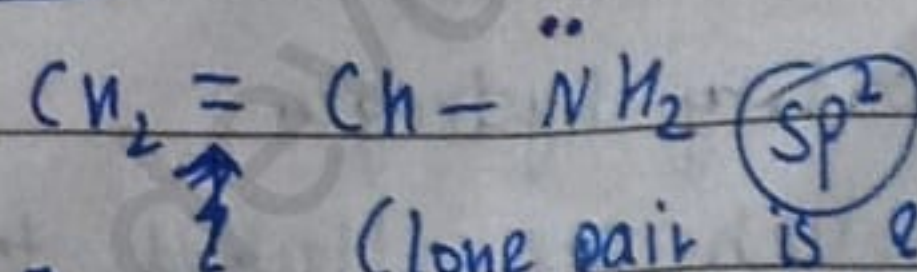 CH₂ = CH – N̈H₂ sp²
(lone pair is